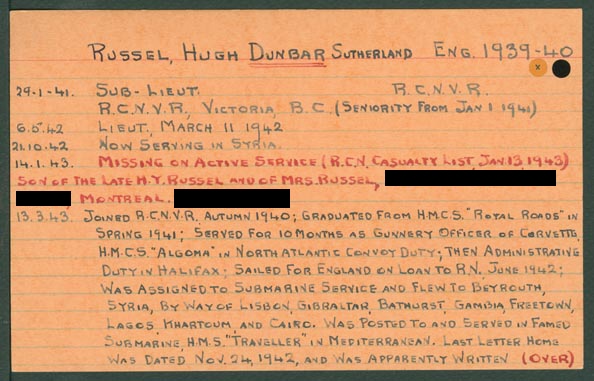 RUSSEL, HUGH DUNBAR SUTHERLAND ENG. 1939-40
x
29-1-41. SUB-LIEUT. R.C.N.V.R.
R.C.N.V.R., VICTORIA, B.C. (SENIORITY FROM JAN 1 1941)
6.5.42 LIEUT, MARCH 11 1942
21.10.42 NOW SERVING IN SYRIA.
14.1.43. MISSING ON ACTIVE SERVICE (R.C.N. CASUALTY LIST, JAN.13, 1943)
SON OF THE LATE H.Y. RUSSEL AND OF MRS. RUSSEL,
, MONTREAL.
13.3.43. JOINED R.C.N.V.R. AUTUMN 1940; GRADUATED FROM H.M.C.S. "ROYAL ROADS" IN
SPRING 1941; SERVED FOR 10 MONTHS AS GUNNERY OFFICER OF CORVETTE,
H.M.C.S. "ALGOMA" IN NORTH ATLANTIC CONVOY DUTY; THEN ADMINISTRATIVE
DUTY IN HALIFAX; SAILED FOR ENGLAND ON LOAN TO R.N. JUNE 1942;
WAS ASSIGNED TO SUBMARINE SERVICE AND FLEW TO BEYROUTH,
SYRIA, BY WAY OF LISBON, GIBRALTAR, BATHURST, GAMBIA, FREETOWN,
LAGOS, KHARTOUM, AND CAIRO. WAS POSTED TO AND SERVED IN FAMED
SUBMARINE, H.M.S. "TRAVELLER" IN MEDITERRANEAN. LAST LETTER HOME
WAS DATED NOV. 24, 1942, AND WAS APPARENTLY WRITTEN (OVER)